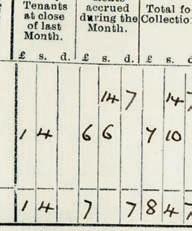 Tenants at close of last Month. | accrued during the Month. | Total fo Collectio
£ s. d. | £ s. d. | £ s.
14 7 | 14 7
1 4 | 6 6 | 7 10
1 4 | 7 7 | 8 4 7